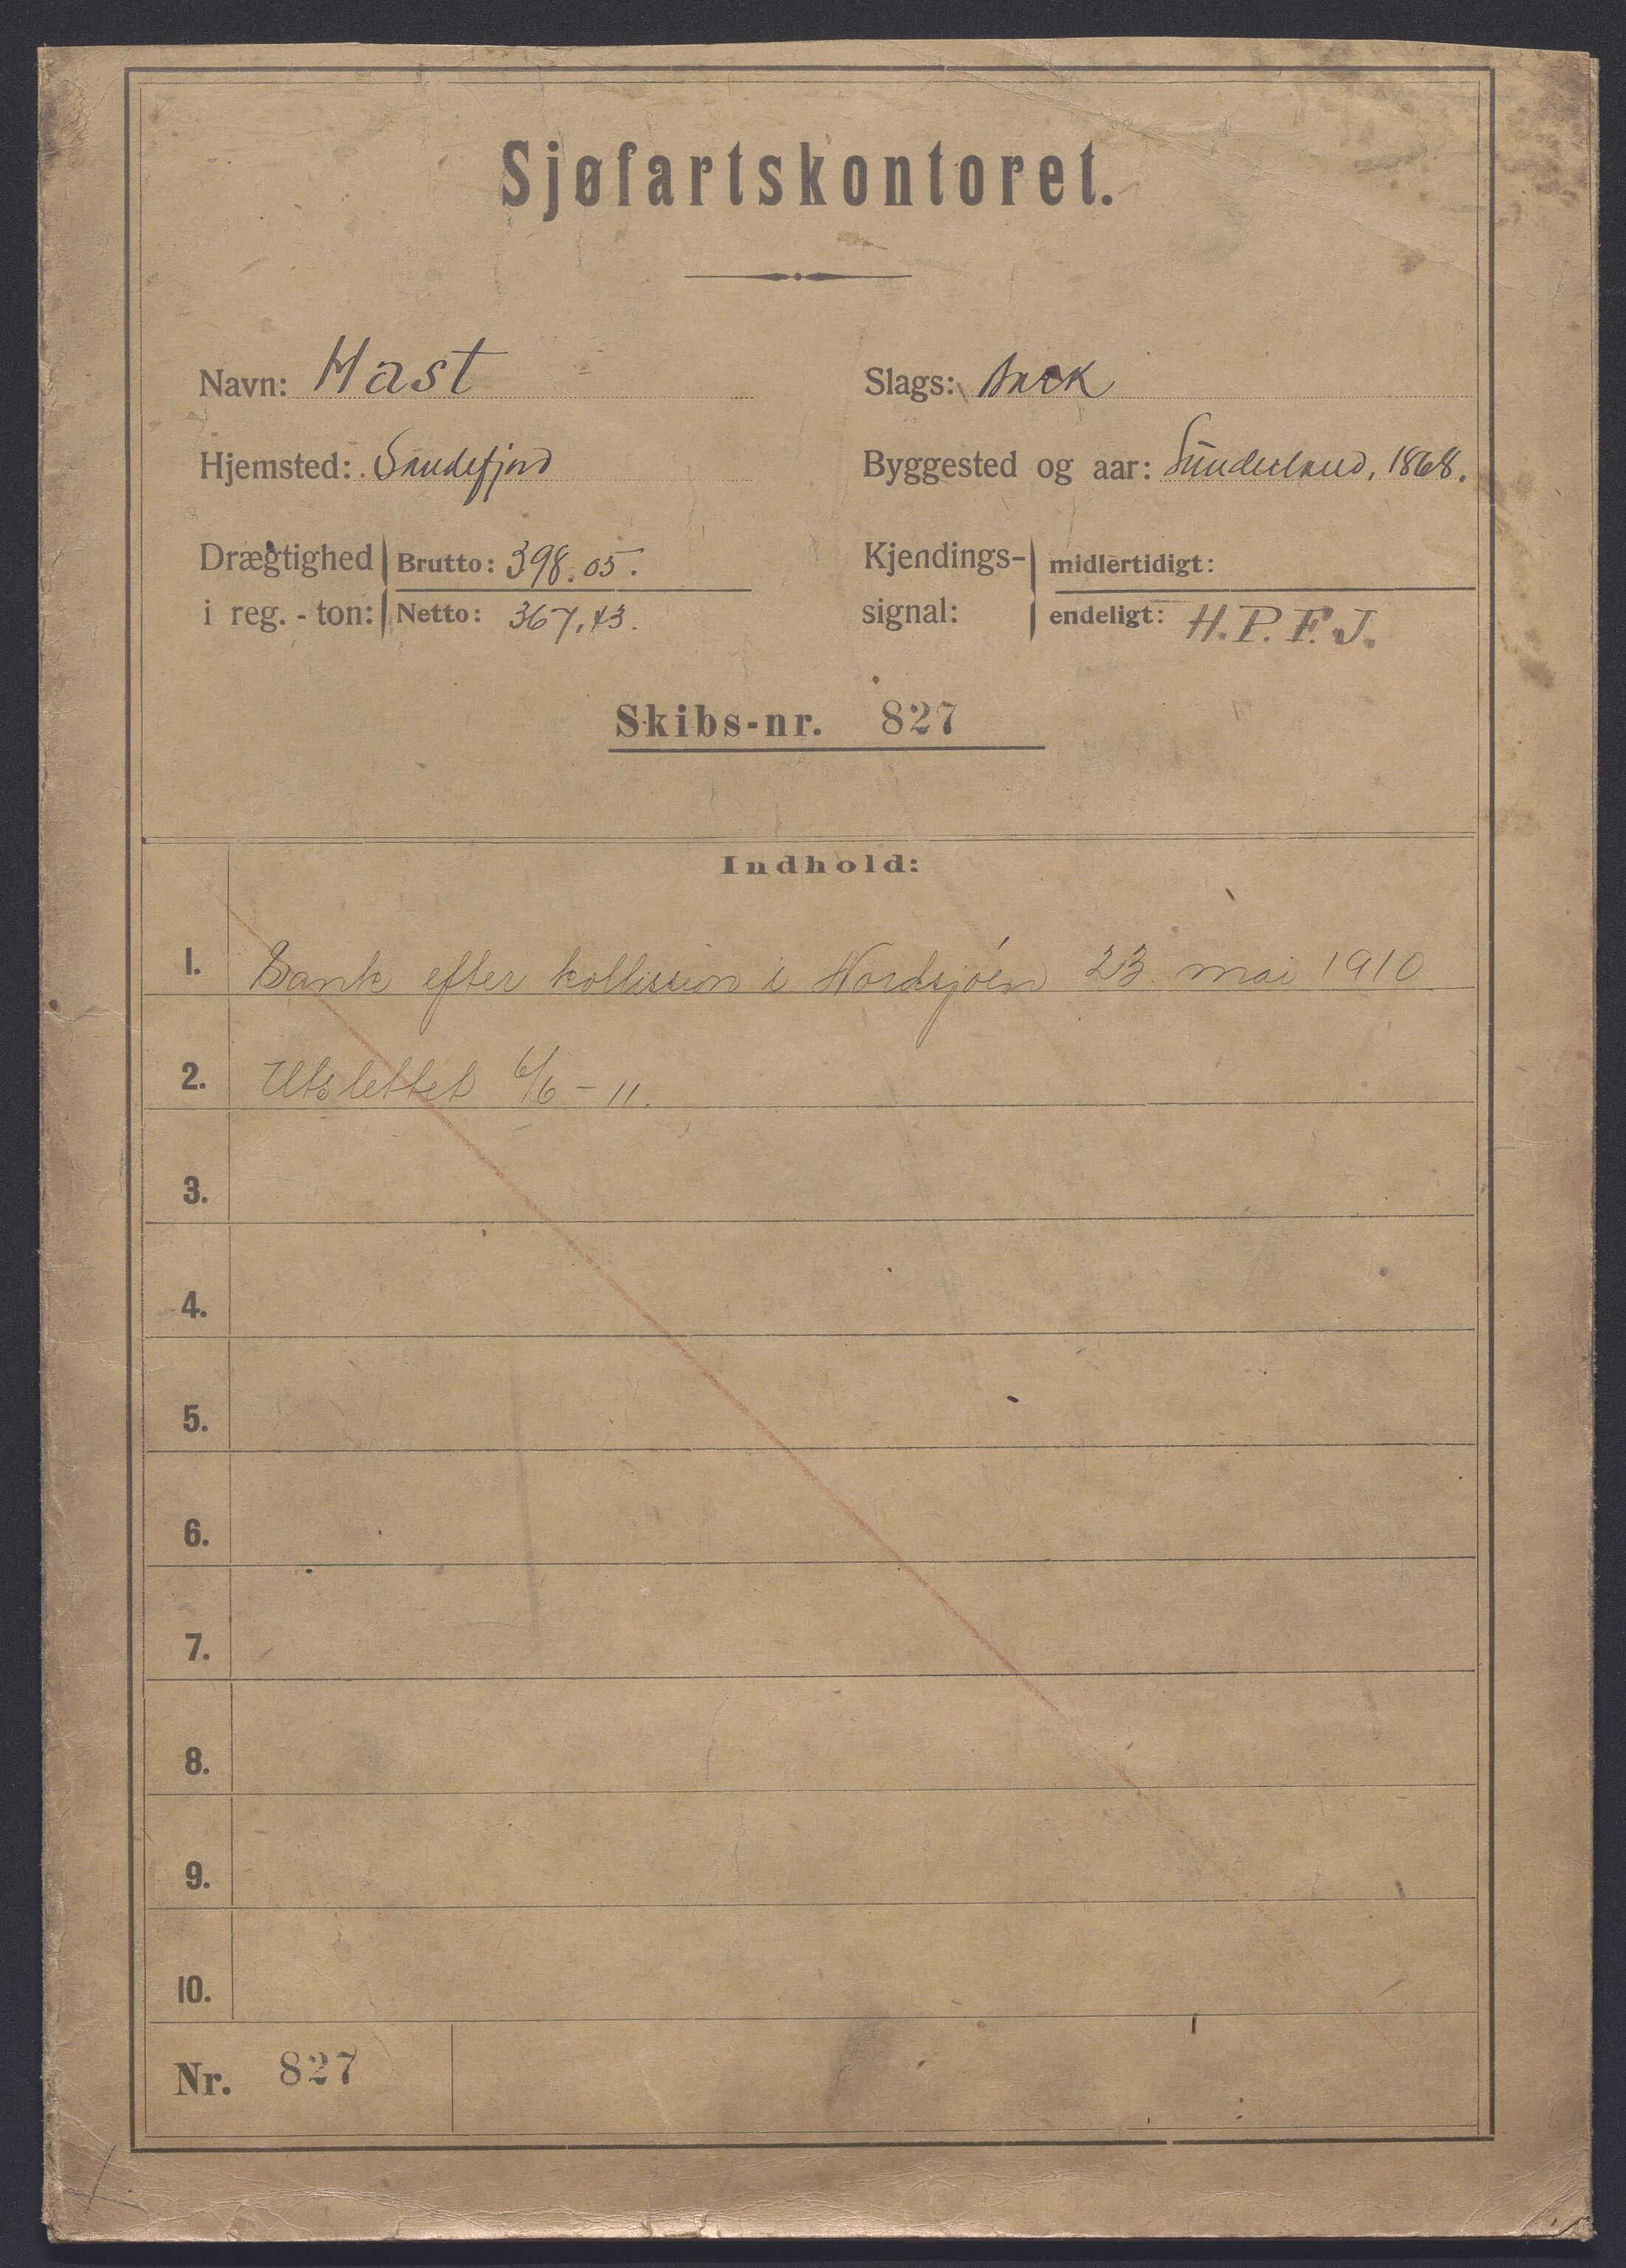 Sjøfartskontoret.
Navn: Hast
Slags: Bark
Hjemsted: Sandefjord
Byggested og aar: Sunderland, 1868.
Drægtighed i reg.-ton:
Brutto: 398.05.
Netto: 367,43.
Kjendings-signal:
midlertidigt:
endeligt: H.P.F.J.
Skibs-nr. 827
Indhold:
1. Sank efter kollission i Nordsjøen 23. mai 1910
2. Utslettet 6/6 - 11.
3.
4.
5.
6.
7.
8.
9.
10.
Nr. 827